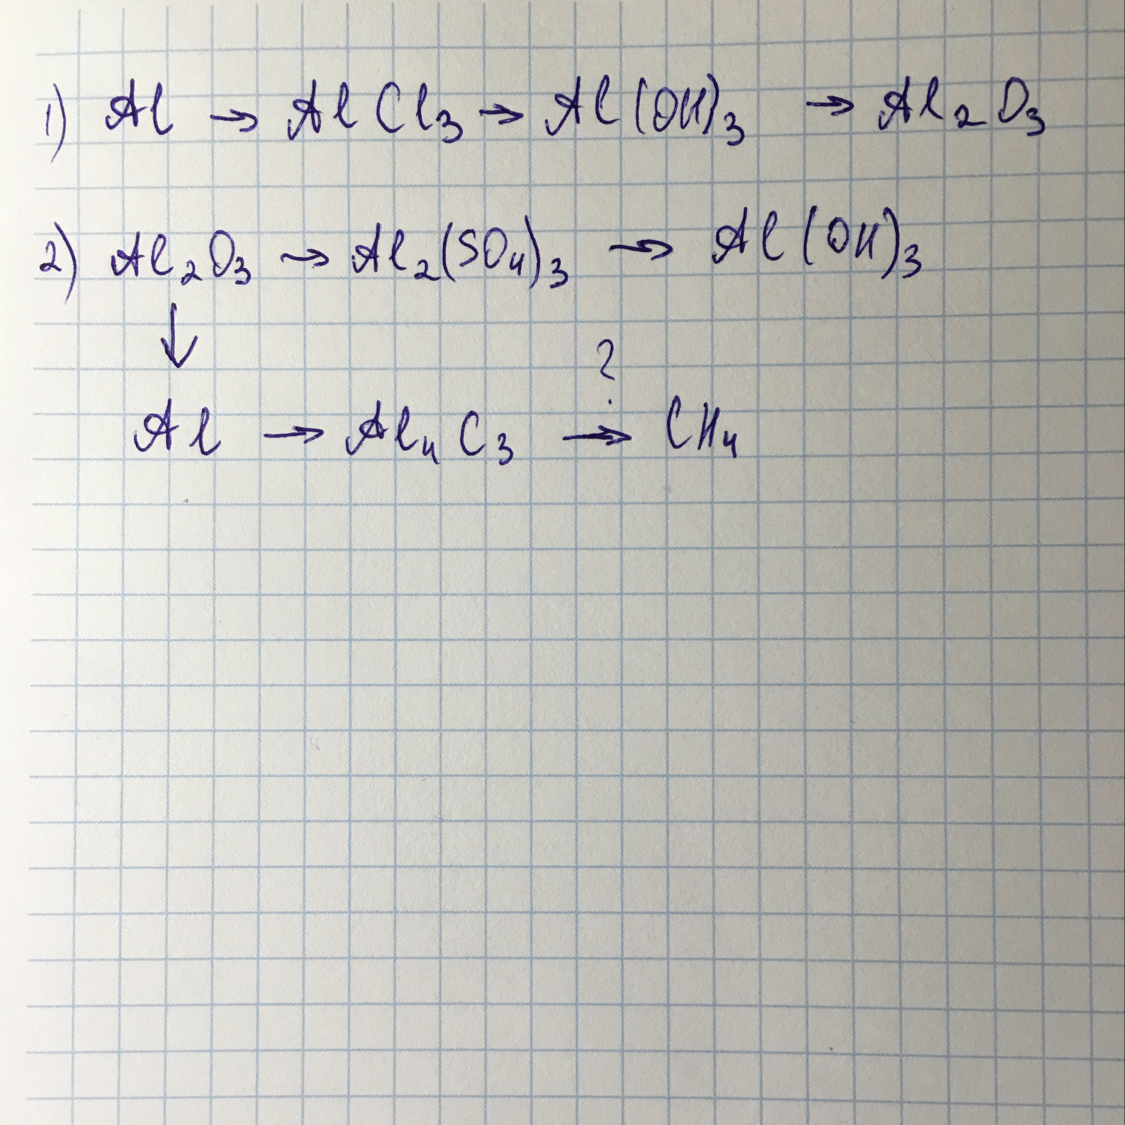 1) Al → AlCl₃ → Al(OH)₃ → Al₂O₃
2) Al₂O₃ → Al₂(SO₄)₃ → Al(OH)₃
↓
?
Al → Al₄C₃ → CH₄